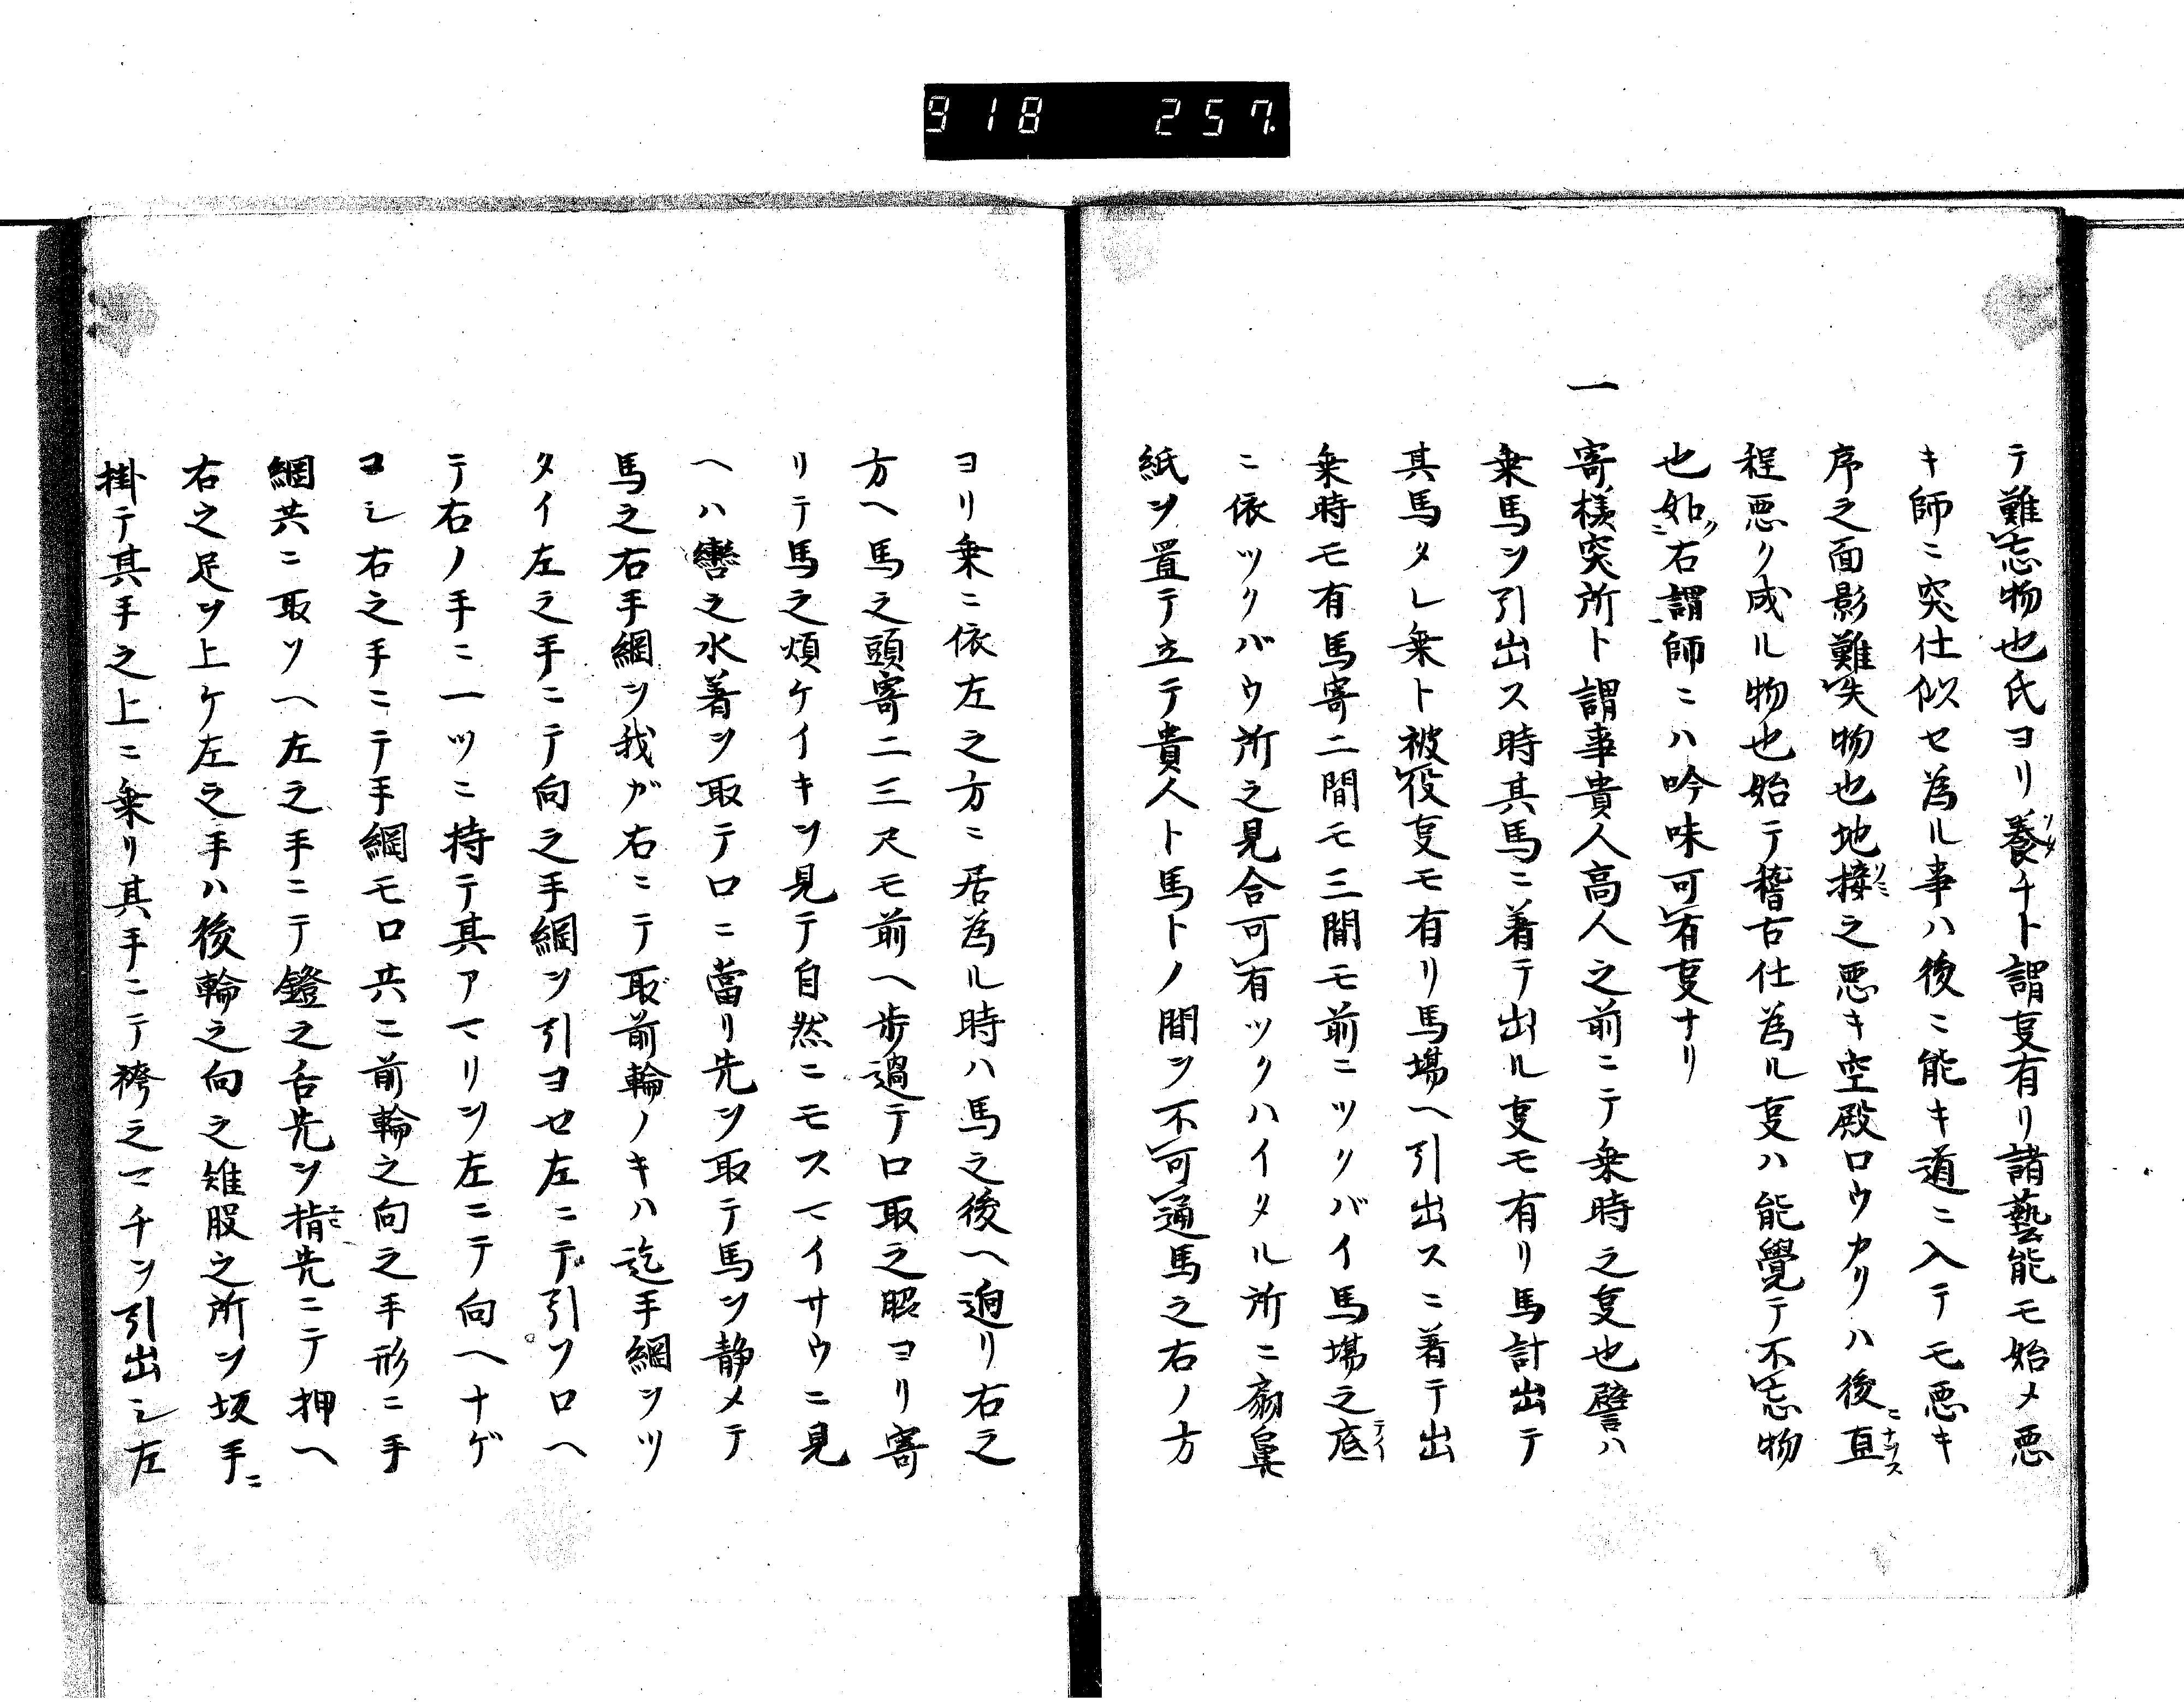 918 257
テ難忘物也氏ヨリ養チト謂叓有リ諸藝能モ始メ悪
キ師ニ突仕似セ為ル事ハ後ニ能キ道ニ入テモ悪キ
序之面影難失物也地接之悪キ空殿ロウカリハ後直
程悪ク成ル物也始テ稽古仕為ル叓ハ能覺テ不忘物
也如右謂師ニハ吟味可有叓ナリ
一寄様突所ト謂事貴人高人之前ニテ乗時之叓也譬ハ
乗馬ヲ引出ス時其馬ニ着テ出ル叓モ有リ馬計出テ
其馬タレ乗ト被役叓モ有リ馬場ヘ引出スニ着テ出
乗時モ有馬寄二間モ三間モ前ニツクバイ馬場之底
ニ依ツクバウ所之見合可有ツクハイタル所ニ扇鼻
紙ヲ置テ立テ貴人ト馬トノ間ヲ不可通馬之右ノ方
ヨリ乗ニ依左之方ニ居為ル時ハ馬之後ヘ廻リ右之
方ヘ馬之頭寄二三尺モ前ヘ歩過テ口取之照ヨリ寄
リテ馬之煩ケイキヲ見テ自然ニモスマイサウニ見
ヘハ轡之水着ヲ取テ口ニ當リ先ヲ取テ馬ヲ静メテ
馬之右手綱ヲ我ガ右ニテ取前輪ノキハ迄手綱ヲツ
タイ左之手ニテ向之手綱ヲ引ヨセ左ニテ引ソロヘ
テ右ノ手ニ一ツニ持テ其アマリヲ左ニテ向ヘナゲ
コシ右之手ニテ手綱モロ共ニ前輪之向之手形ニ手
綱共ニ取ソヘ左之手ニテ鐙之舌先ヲ指先ニテ押ヘ
右之足ヲ上ケ左之手ハ後輪之向之雉股之所ヲ坂手ニ
掛テ其手之上ニ乗リ其手ニテ袴之マチヲ引出シ左